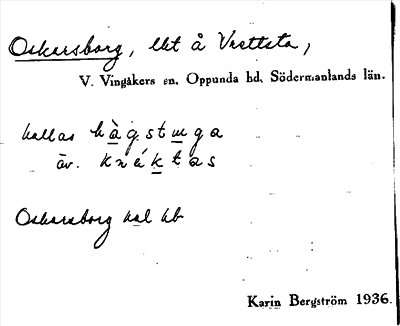 Oskarsborg, lht å Vrettsta,
V. Vingåkers sn, Oppunda hd, Södermanlands län.
kallas hàgstuga
äv. knéktas
Oskarsborg kal kb
Karin Bergström 1936.